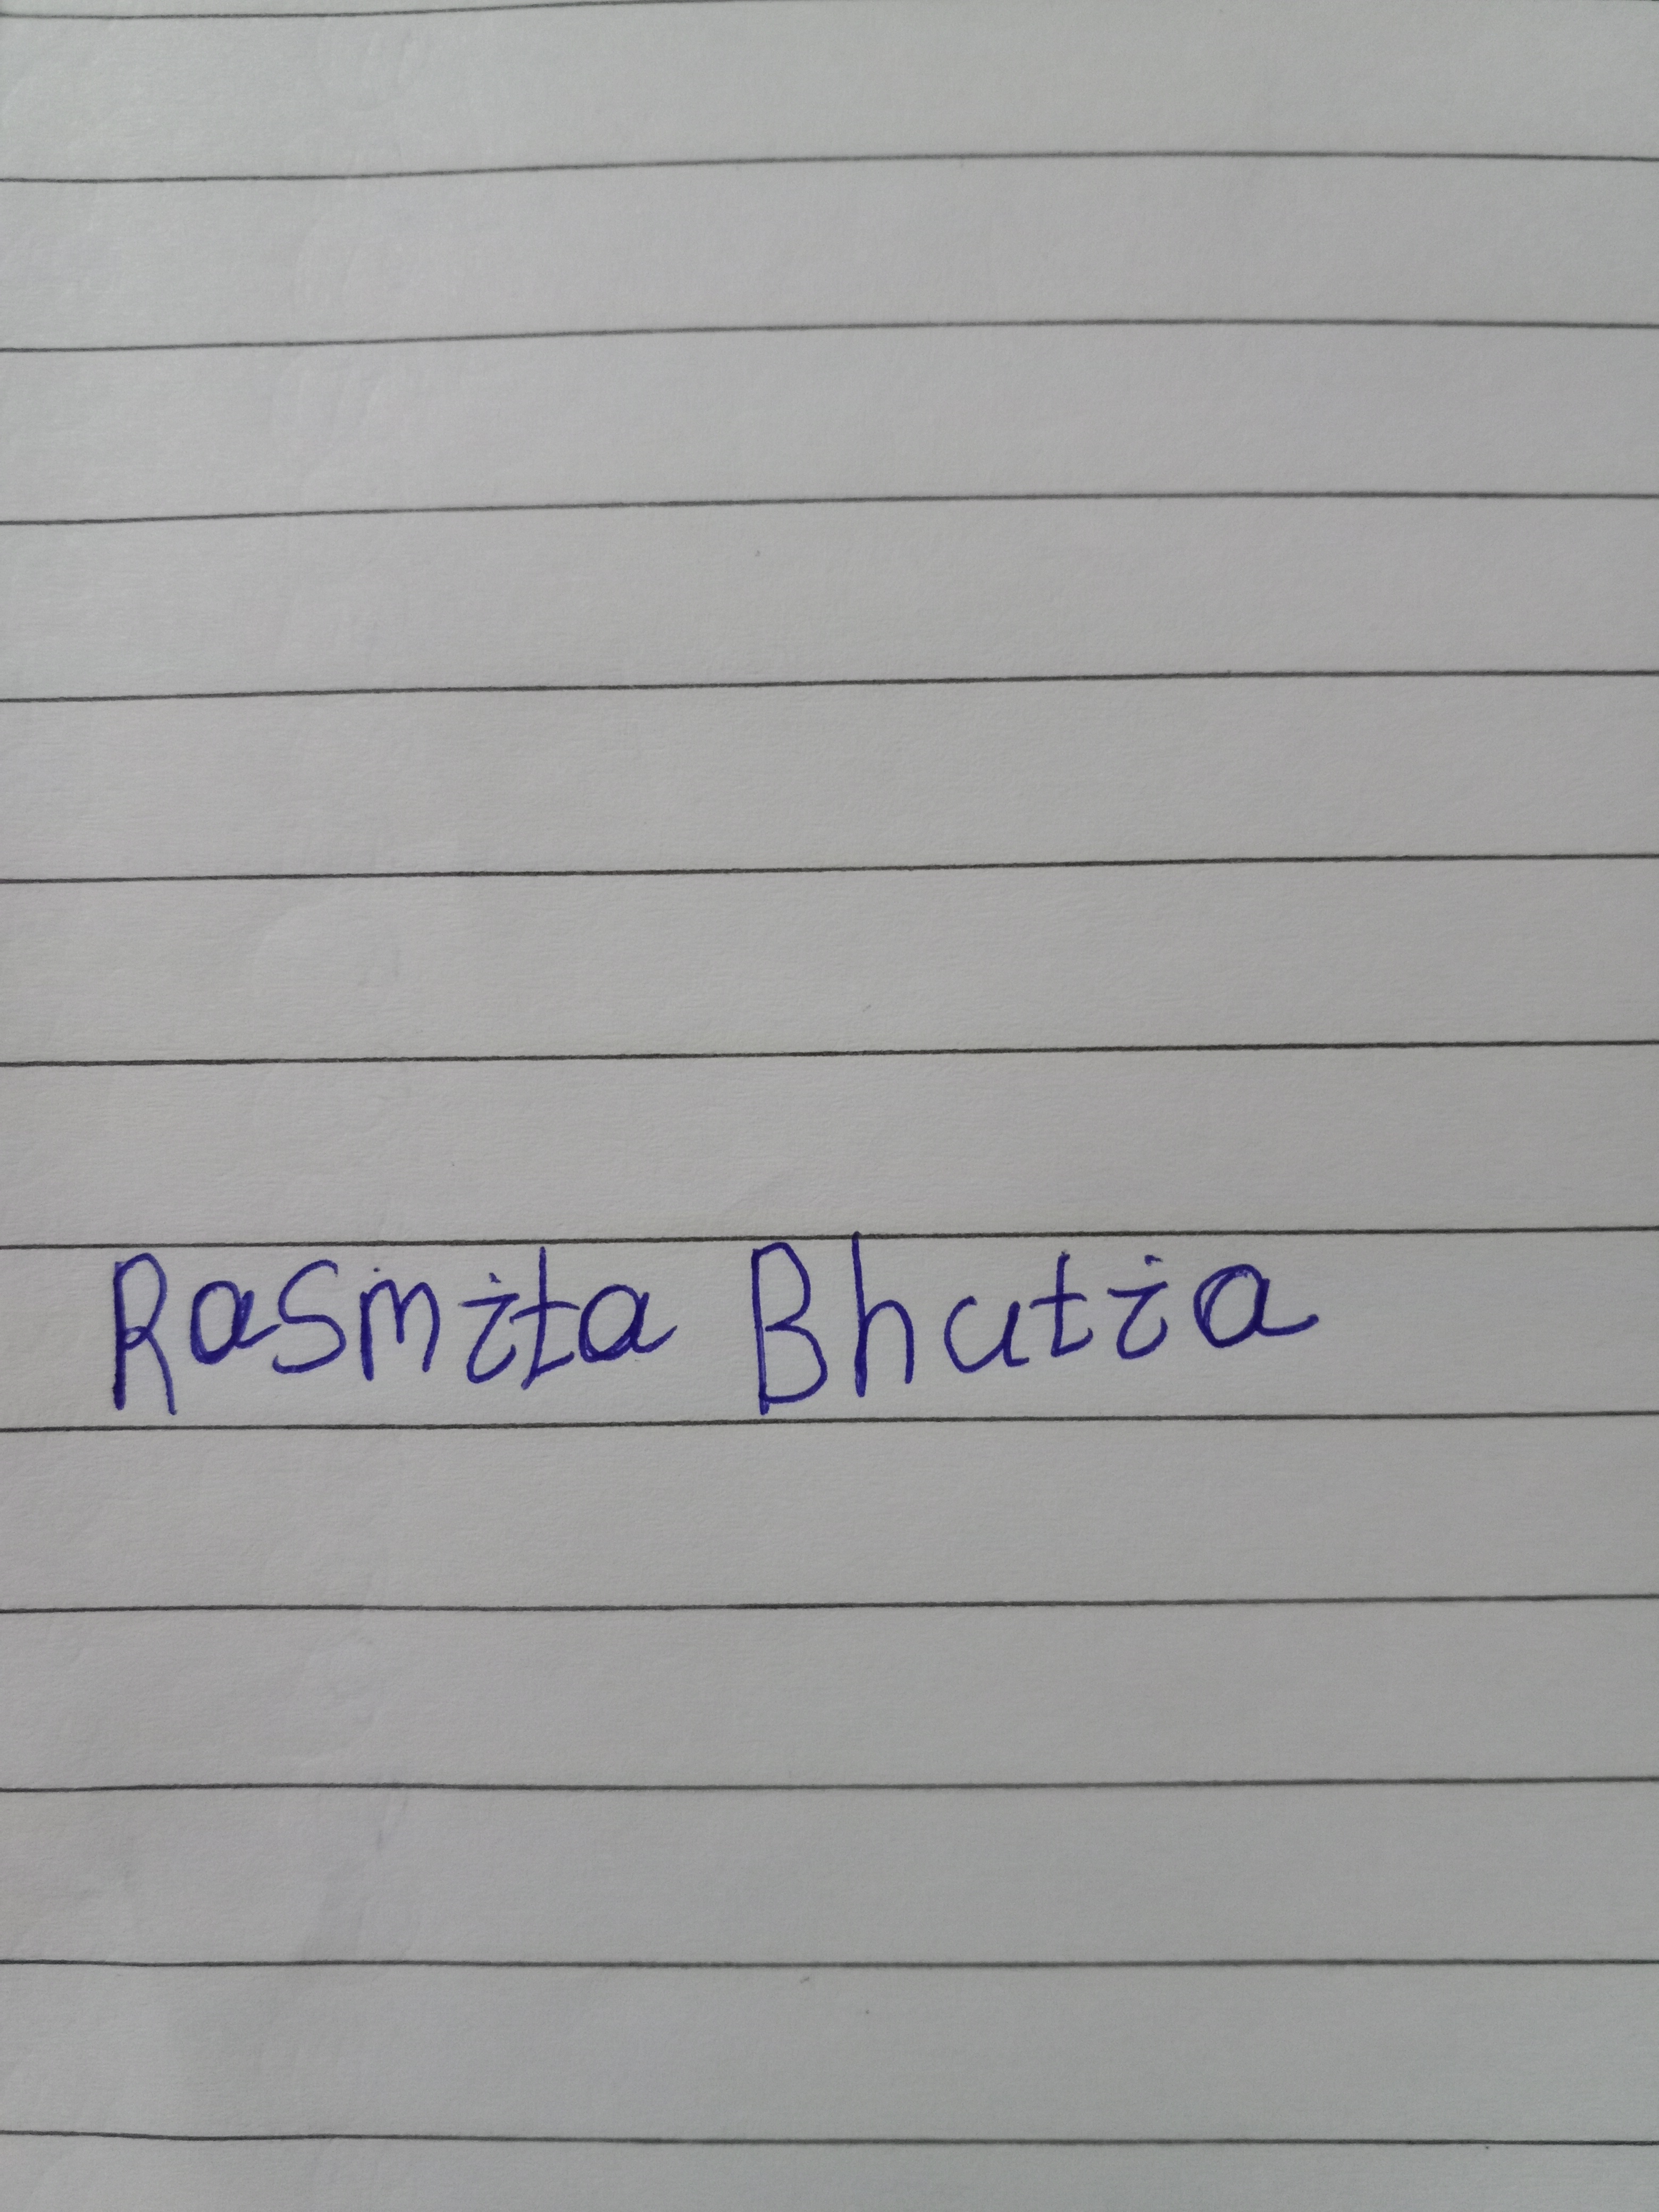 Rasmita Bhatia